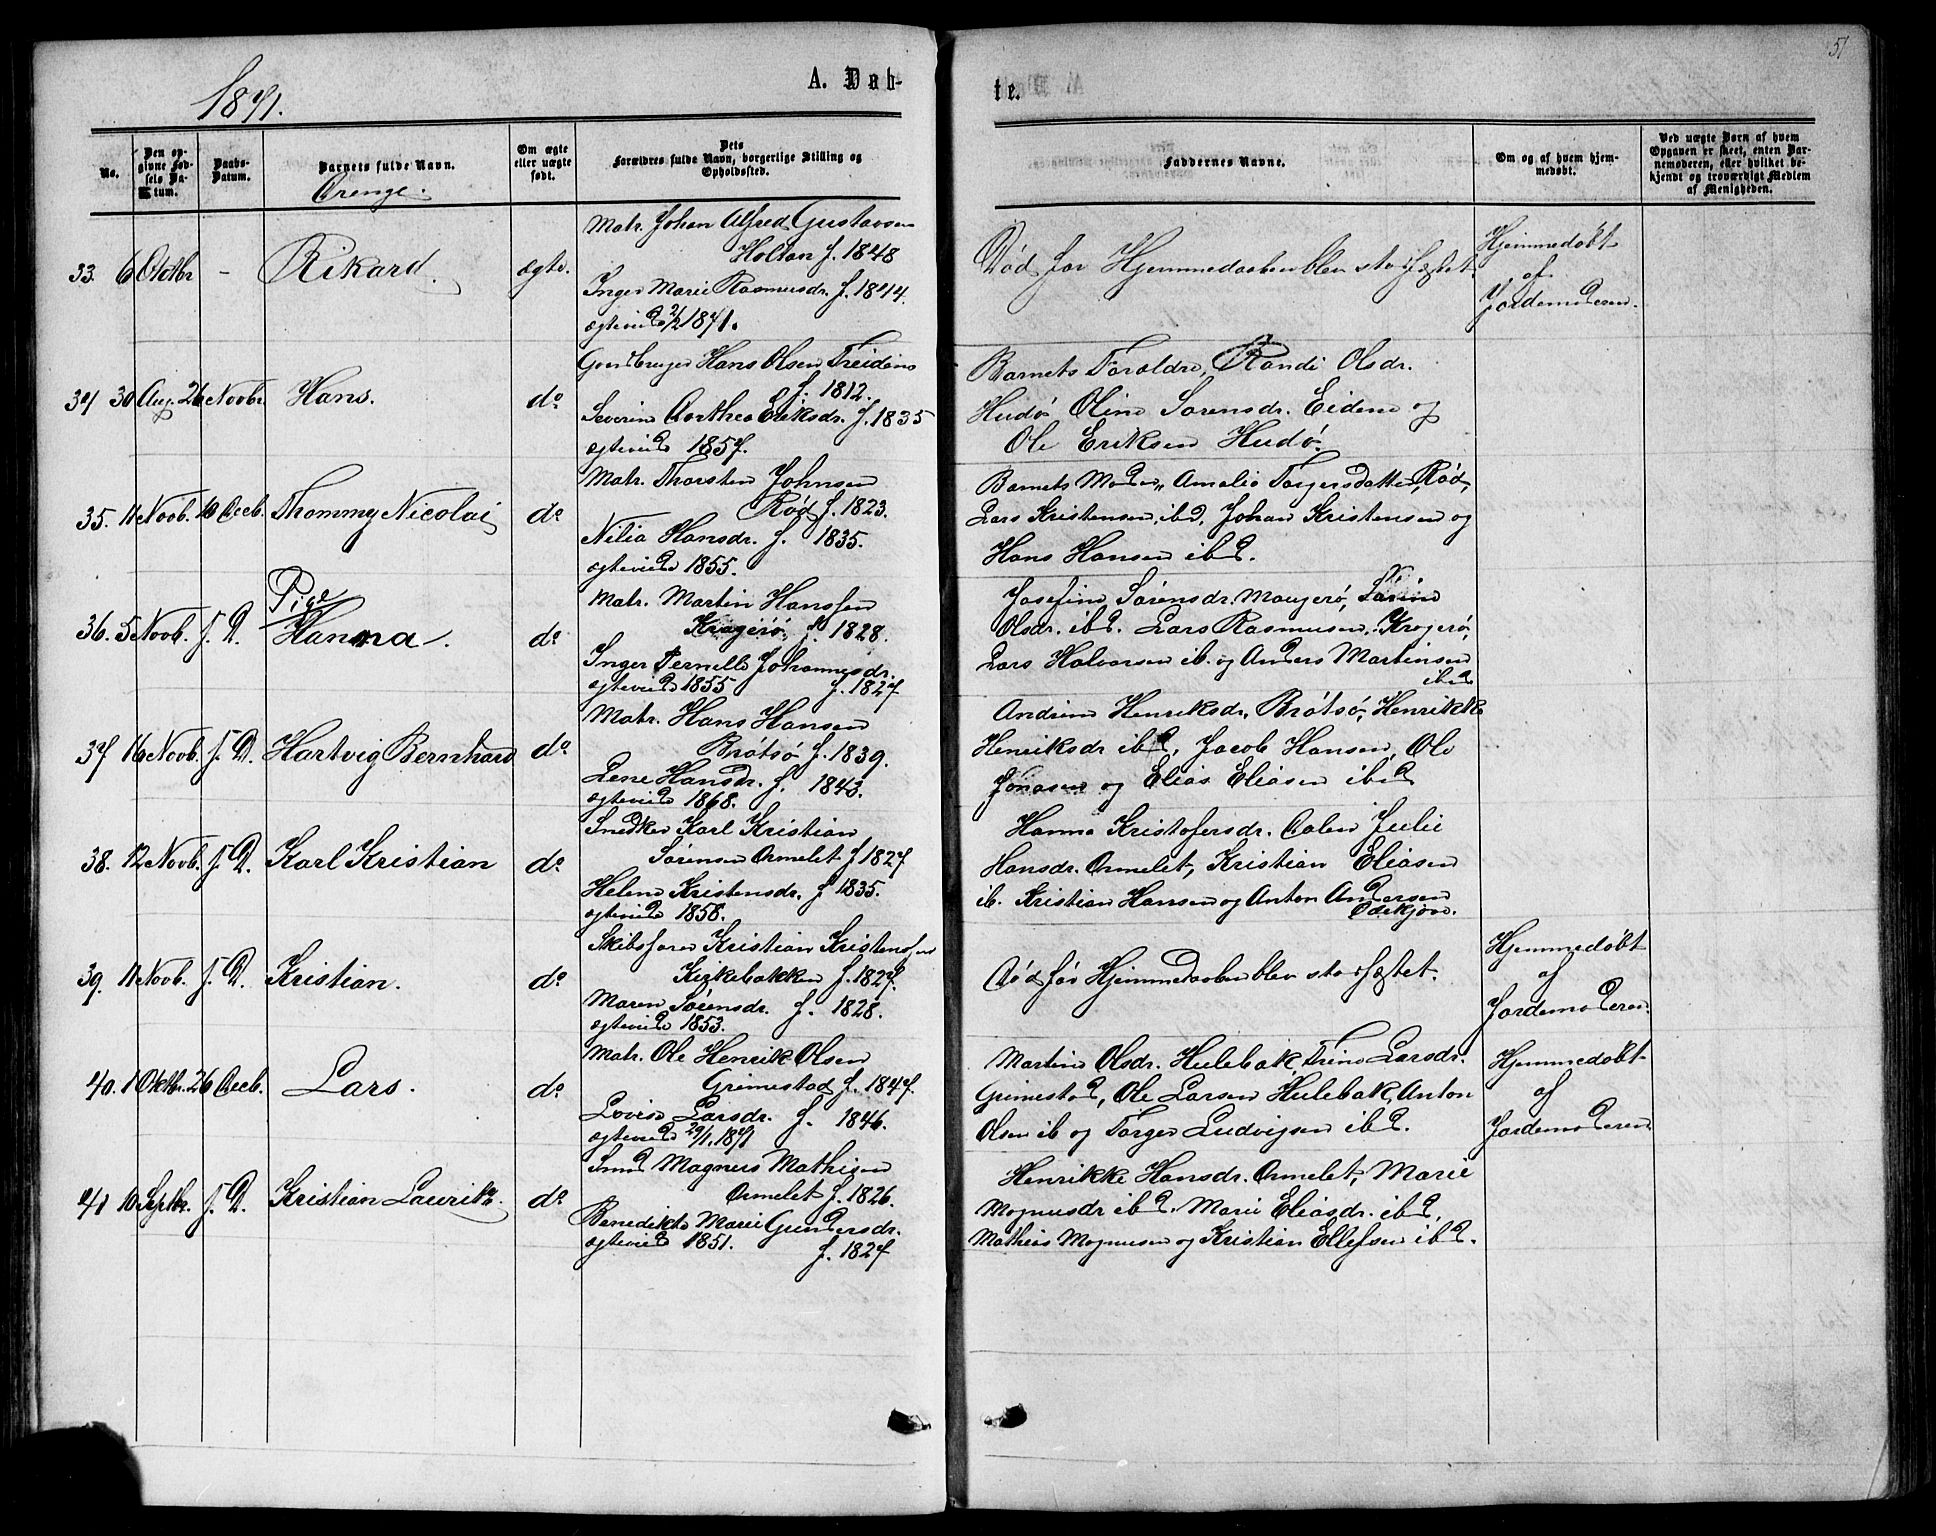 51
1871.
A. Døb-
te.
No.
Den op-
givne Fød-
sels Da-
tum.
Daabs-
Datum.
Barnets fulde Navn.
Drenge.
Om ægte
eller uægte
født.
Dets
Forældres fulde Navn, borgerlige Stilling og
Opholdssted.
Faddernes Navne.
Om og af hvem hjem-
medøbt.
Ved uægte Børn af hvem
Opgaven er skeet, enten Bar-
nemoderen, eller hvilket be-
kjendt og troværdigt Medlem
af Menigheden.
Matr. Johan Alfred Gustavsen
Holtan f. 1848
33. 6 Octbr - Rikard. ægte.
Inger Marie Rasmusdr. f. 1844.
ægteviede 2/2 1871.
Død før Hjemmedaaben blev stadfæstet.
Hjemmedøbt
af
Jordemoderen.
Gaardbruger Hans Olsen
f. 1812.
34 30 Aug. 26 Novbr Hans. do
Severine Dorthea Eriksdr. f. 1835
ægteviede 1857.
Barnets Forældre, Randi Olsdr.
Hudø Oline Sørensdr. Eidene og
Ole Eriksen Hudø.
Matr. Thorsten Johnsen
Rød f. 1823.
35. 11 Novb. 10 Decb. Thommy Nicolai do
Nilia Hansdr. f. 1835.
ægteviede 1855.
Barnets Moder, Amalie Torgersdatter Rød,
Lars Kristensen, ibd, Johan Kristensen og
Hans Hansen ibd.
Pige
Matr. Martin Hanssen
Kragerø f. 1828.
36. 5 Novb. s. D. Hanna. do
Inger Pernelle Johannesdr.
ægteviede 1855 f. 1827
Josefine Sørensdr. Maugerø,
Olsdr. ibd. Lars Rasmusen, Kragerø,
Lars Halvorsen ib. og Anders Martinsen
ibd
Matr. Hans Hansen
Brøtsø f. 1839.
37 16 Novb. s. D. Hartvig Bernhard do
Lene Hansdr. f. 1843.
ægteviede 1868.
Andrine Henriksdr. Brøtsø, Henrikke
Henriksdr ibd, Jacob Hansen, Ole
Jonasen og Elias Eliasen ibd
Snedker Karl Kristian
Sørensen Ormelet f. 1827
38. 12 Novb. s. D. Karl Kristian do
Helene Kristensdr. f. 1835.
ægteviede 1858.
Hanna Kristofersdr. Dalen Julie
Hansdr. Ormelet, Kristian Eliasen
ib. Kristian Hansen og Anton Andersen
Ødekjær.
Skibsfører Kristian Kristensen
Kirkebakken f. 1827.
39. 11 Novb. s. D. Kristian. do
Maren Sørensdr. f. 1828.
ægteviede 1853.
Død før Hjemmedaaben blev stadfæstet.
Hjemmedøbt
af
Jordemoderen.
Matr. Ole Henrik Olsen
Grimestad f. 1847.
40. 1 Oktbr. 26 Decb. Lars. do
Lovise Larsdr. f. 1846.
ægteviede 29/1.1871
Martine Olsdr. Hulebak, Trine Larsdr.
Grimestad, Ole Larsen Hulebak, Anton
Olsen ib og Torger Ludvigsen ibd.
Hjemmedøbt
af
Jordemoderen
Smed Magnus Mathisen
Ormelet f. 1826.
41 10 Septbr. s. D. Kristian Laurits. do
Benedikte Marie Gundersdr.
ægteviede 1851. f. 1827
Henrikke Hansdr. Ormelet, Marie
Magnusdr ibd. Marie Eliasdr. ibd,
Mathias Magnusen og Kristian Ellefsen ibd.